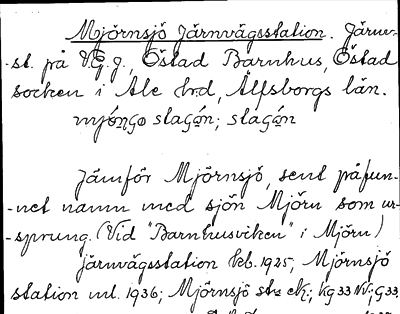 Mjörnsjö Järnvägsstation. Järnv-
-st. på V.G.J., Östad Barnhus, Östad
socken i Ale hrd, Älfsborgs län.
slagån; slagån
Jämför Mjörnsjö, sent påfun-
-net namn med sjön Mjörn som ur-
-sprung. (Vid "Barnhusviken" i Mjörn)
Järnvägsstation kb. 1925; Mjörnsjö
station ml. 1936; Mjörnsjö